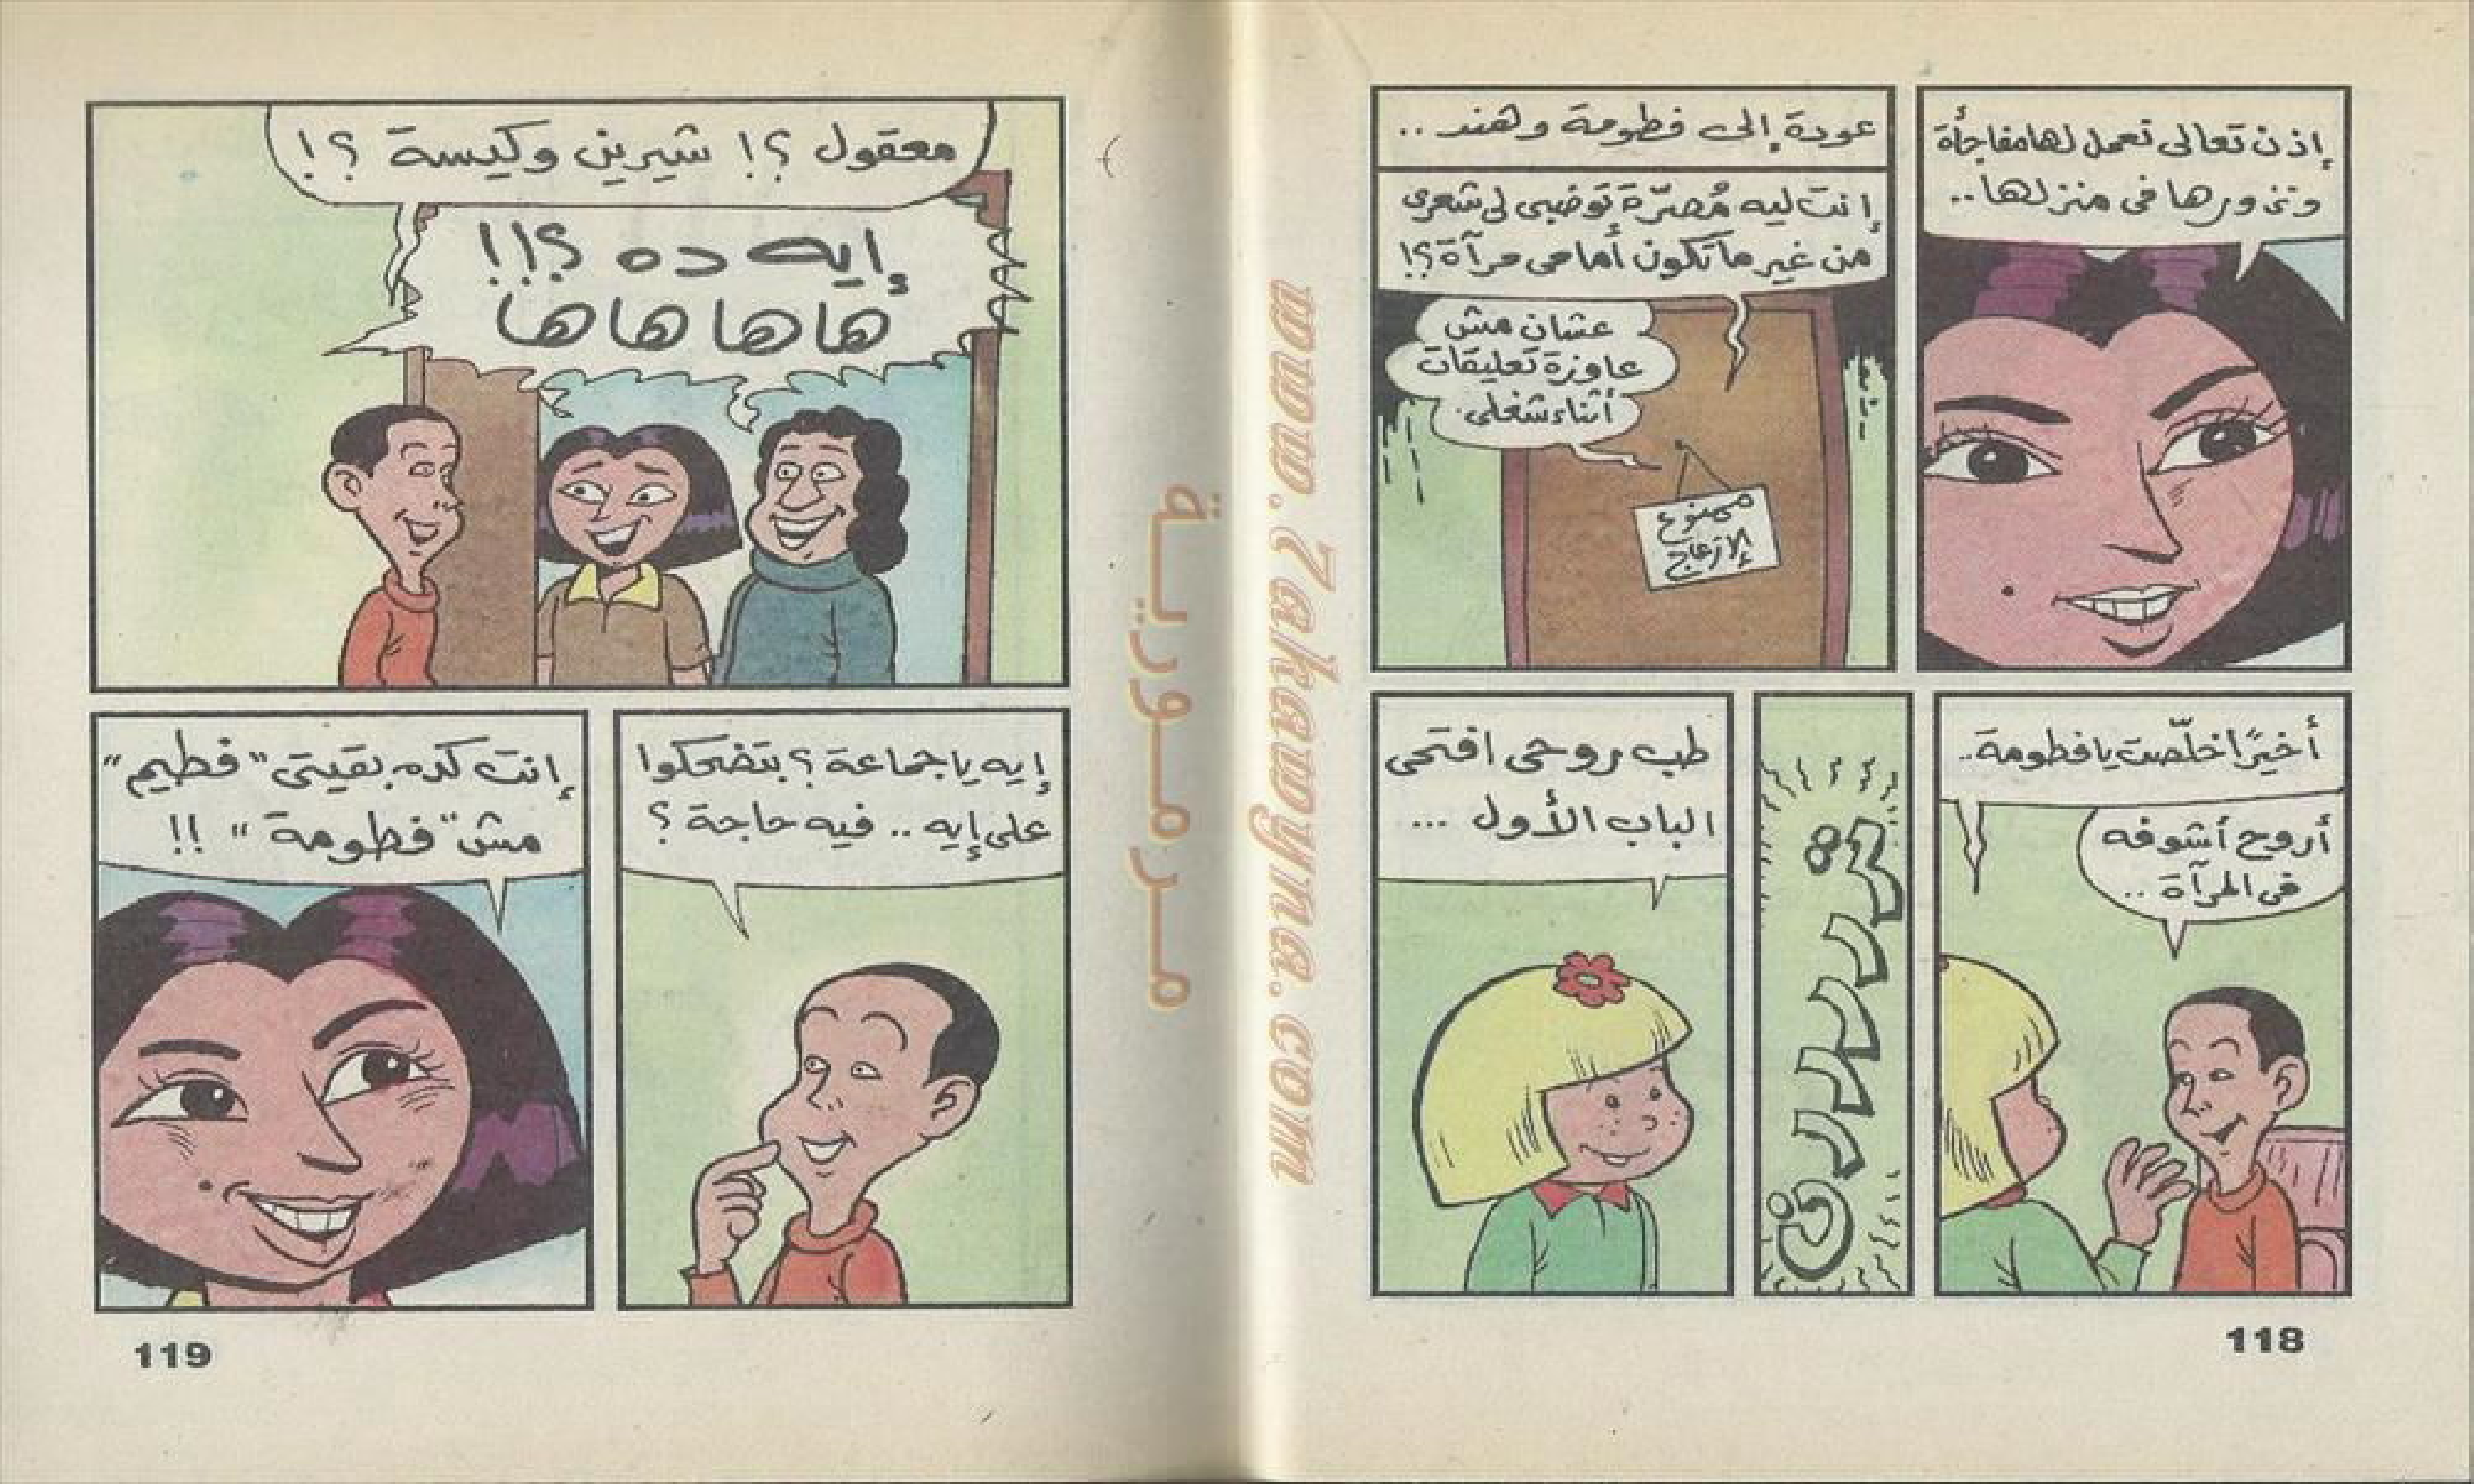 إذن تعالى نعمل لها مفاجأة
ونزورها فى منزلها..
عودة إلى فطومة وهند..
إنت ليه مُصرّة توضبى لى شعرى
من غير ما تكون أمامى مرآة؟!
عشان مش
عاوزة تعليقات
أثناء شغلى.
ممنوع
الإزعاج
أخيرًا خلّصت يا فطومة..
أروح أشوفه
فى المرآة..
تررررررن
طب روحى افتحى
الباب الأول ...
118
معقول؟! شيرين وكيسة؟!
إيه ده ؟!!
ها ها ها ها
إيه يا جماعة؟ بتضحكوا
على إيه.. فيه حاجة؟
إنت كده بقيتى "فطيم"
مش "فطومة" !!
119
مرمورية
www.7akawyna.com